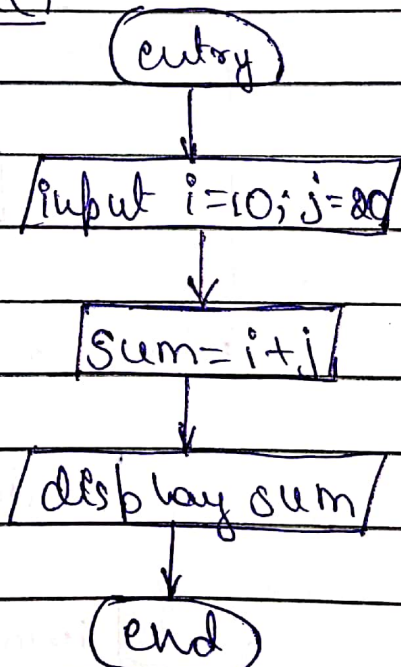 entry
input i=10; j=20
sum=i+j
display sum
end